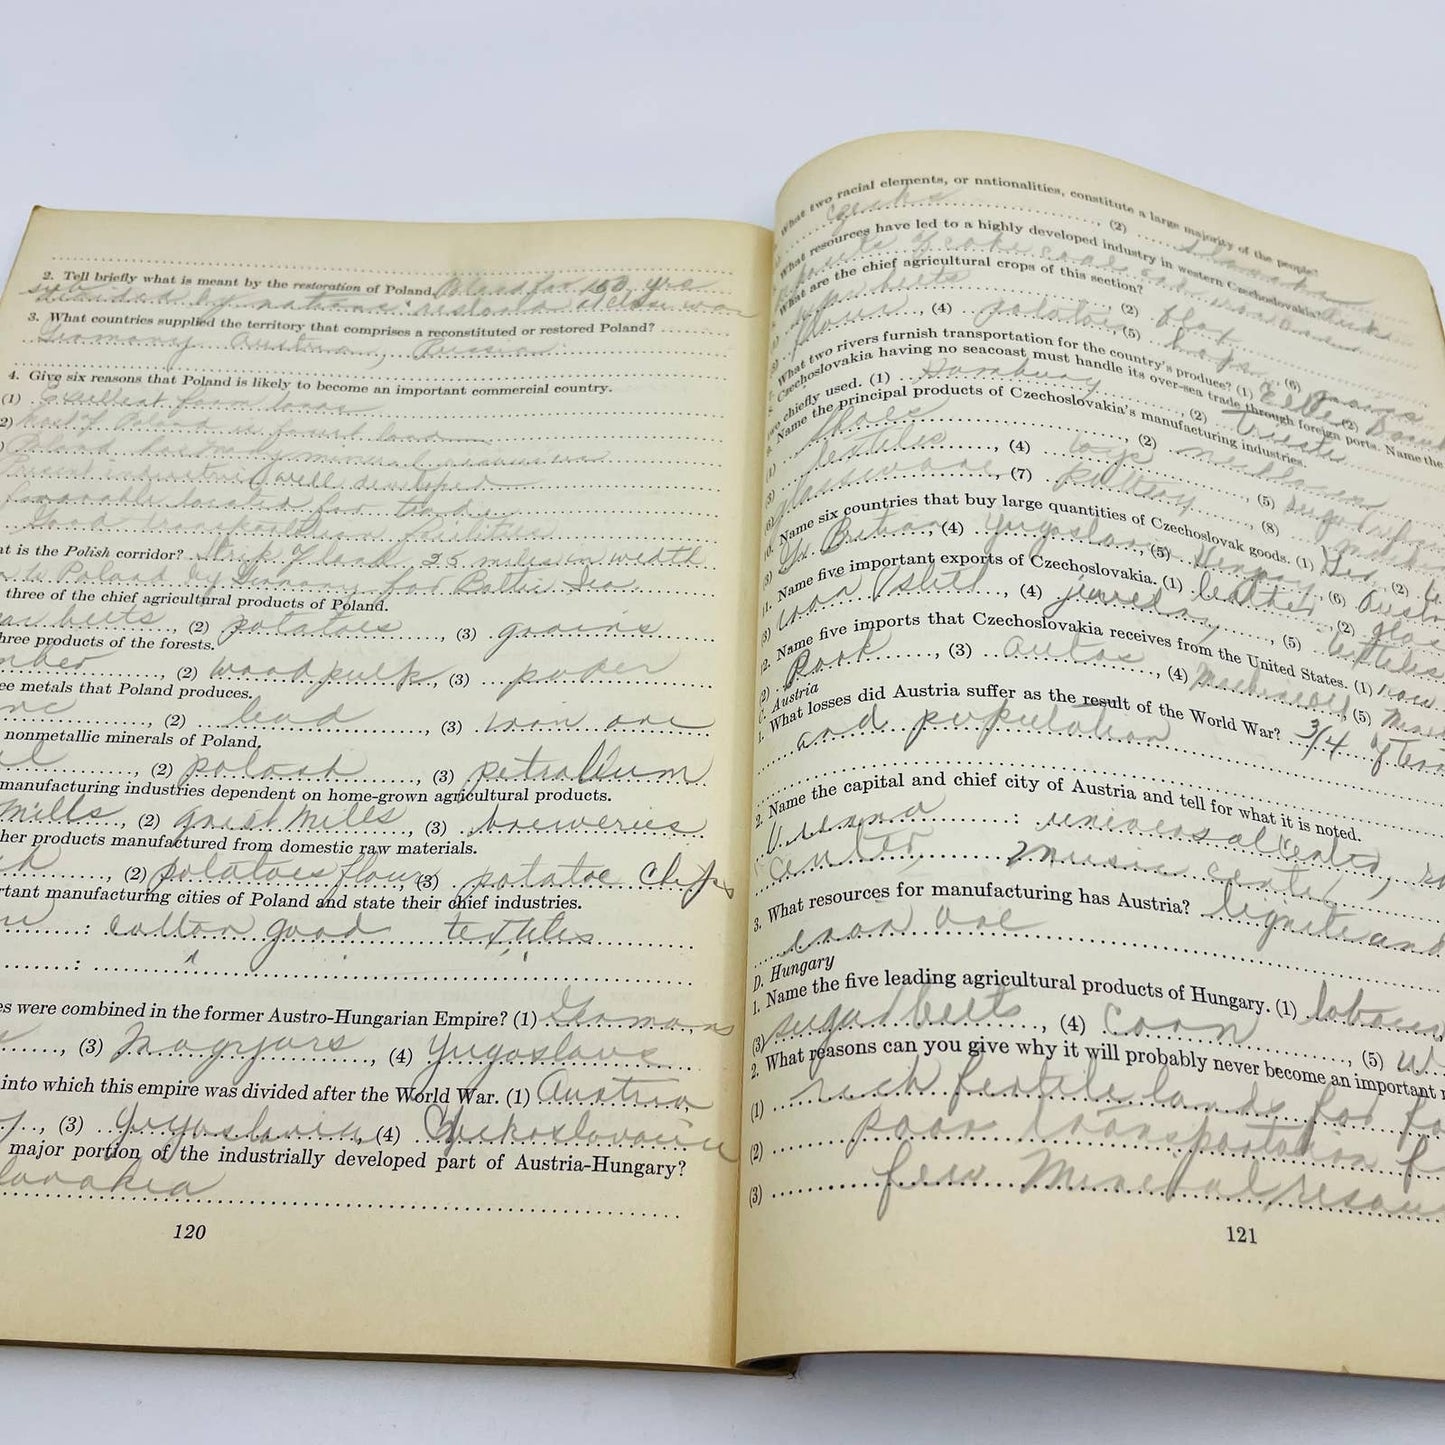 2. Tell briefly what is meant by the restoration of Poland. Poland for 150 yrs
divided by nations restored after war
3. What countries supplied the territory that comprises a reconstituted or restored Poland?
Germany Austria, Russia
4. Give six reasons that Poland is likely to become an important commercial country.
(1) Excellent farm lands
2) Most of Poland is fruit land
Poland has many mineral resources
Present industries well developed
favorable located for trade
Good transportation facilities
at is the Polish corridor? Strip of land 25 miles in width
to Poland by Germany for Baltic Sea
three of the chief agricultural products of Poland.
beets, (2) potatoes, (3) grains
hree products of the forests.
mber, (2) wood pulp, (3) paper
ee metals that Poland produces.
inc, (2) lead, (3) iron ore
nonmetallic minerals of Poland.
(2) potash, (3) petraleum
manufacturing industries dependent on home-grown agricultural products.
mills, (2) grist mills, (3) breweries
her products manufactured from domestic raw materials.
(2) potatoes flour (3) potatoe chips
ortant manufacturing cities of Poland and state their chief industries.
: cotton good textiles
:
es were combined in the former Austro-Hungarian Empire? (1) Germans
, (3) Magyars, (4) Yugoslavs
into which this empire was divided after the World War. (1) Austria
, (3) Yugoslavia, (4) Czechoslovakia
major portion of the industrially developed part of Austria-Hungary?
lovakia
120
What two racial elements, or nationalities, constitute a large majority of the people?
Czechs, (2) Slovaks
What resources have led to a highly developed industry in western Czechoslovakia?
What are the chief agricultural crops of this section?
sugar beets (2) flax
flour, (4) potatoes, (5) hops, (6) grains
What two rivers furnish transportation for the country's produce? (1) Elbe (2)
Czechoslovakia having no seacoast must handle its over-sea trade through foreign ports. Name the
two chiefly used. (1) Hamburg, (2) Trieste
9. Name the principal products of Czechoslovakia's manufacturing industries.
(1) shoes, (2)
(3) textiles, (4) toys, (5) sugar
(6) glassware, (7) pottery, (8)
10. Name six countries that buy large quantities of Czechoslovak goods. (1) Ger, (2)
(3) Gt Britain, (4) Yugoslavia (5) Hungary, (6) Austr
11. Name five important exports of Czechoslovakia. (1) leather, (2) glas
(3) iron & steel, (4) jewelry, (5) textiles
12. Name five imports that Czechoslovakia receives from the United States. (1) raw
(2) Pork, (3) autos, (4) Machinery, (5)
C. Austria
1. What losses did Austria suffer as the result of the World War? 3/4 of terr
and pupulation
2. Name the capital and chief city of Austria and tell for what it is noted.
Vienna: universal center,
center, music center
3. What resources for manufacturing has Austria? lignite and
iron ore
D. Hungary
1. Name the five leading agricultural products of Hungary. (1)
(3) sugar beets, (4) corn, (5)
2. What reasons can you give why it will probably never become an important
(1) rich fertile lands for
(2) poor transportation
(3) few mineral resou
121